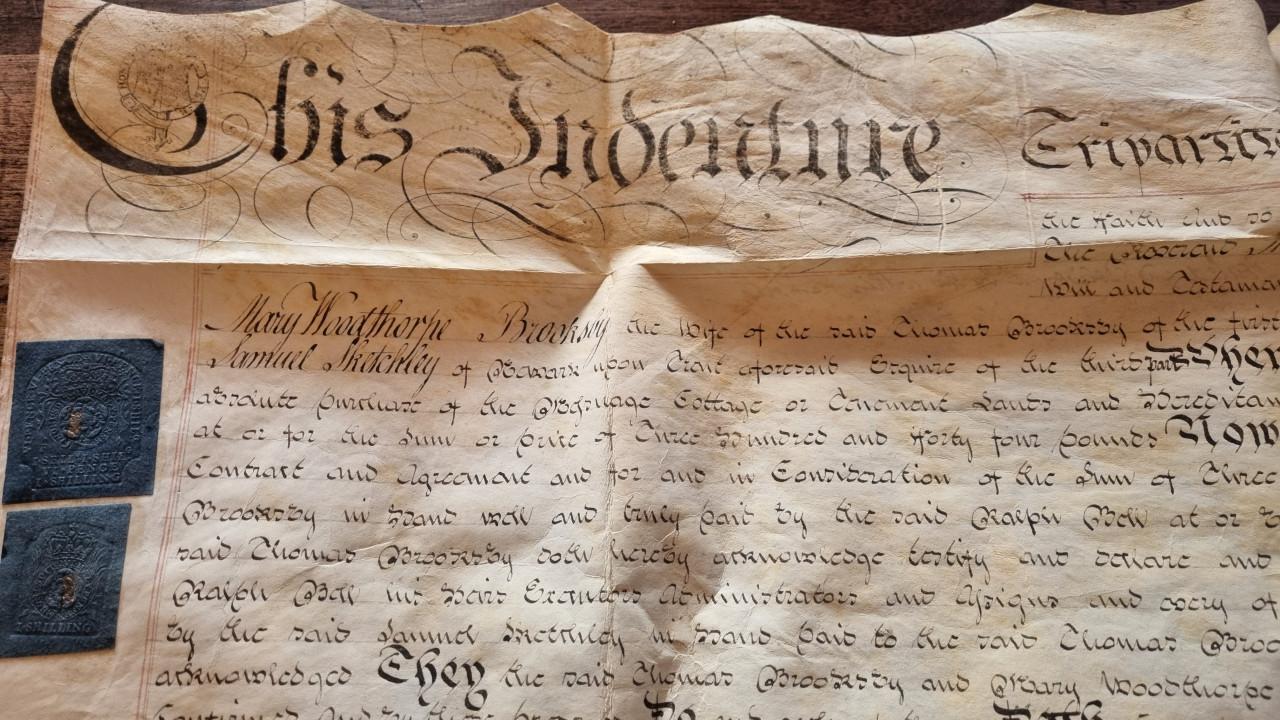 This Indenture Tripartite
the Faith and so
The Reverend
Will and Testamen
Mary Woodthorpe Brooksby the Wife of the said Thomas Brooksby of the first
Samuel Sketchley of Newark upon Trent aforesaid Esquire of the third part Wher
absolute purchase of the Messuage Cottage or Tenement Lands and Hereditam
at or for the Sum or price of Three Hundred and forty four pounds Now
Contract and Agreement and for and in Consideration of the Sum of Three
Brooksby in Hand well and truly paid by the said Ralph Bell at or b
said Thomas Brooksby doth hereby acknowledge testify and declare and
Ralph Bell his Heirs Executors Administrators and Assigns and every of
by the said Samuel Sketchley in Hand paid to the said Thomas Broo
acknowledged They the said Thomas Brooksby and Mary Woodthorpe
Confirmed And by these
SIX SHILL
PENCE
I SHILLING
I SHILLING